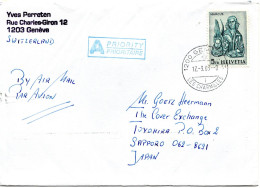 Yves Perreten
Rue Charles-Giron 12
1203 Genève
SWITZERLAND
A PRIORITY
PRIORITAIRE
BY AIR MAIL
PAR AVION
Mr. Goetz Heermann
Cover Exchange
TOYOHIRA P.O. Box 2
SAPPORO 062-8691
JAPAN